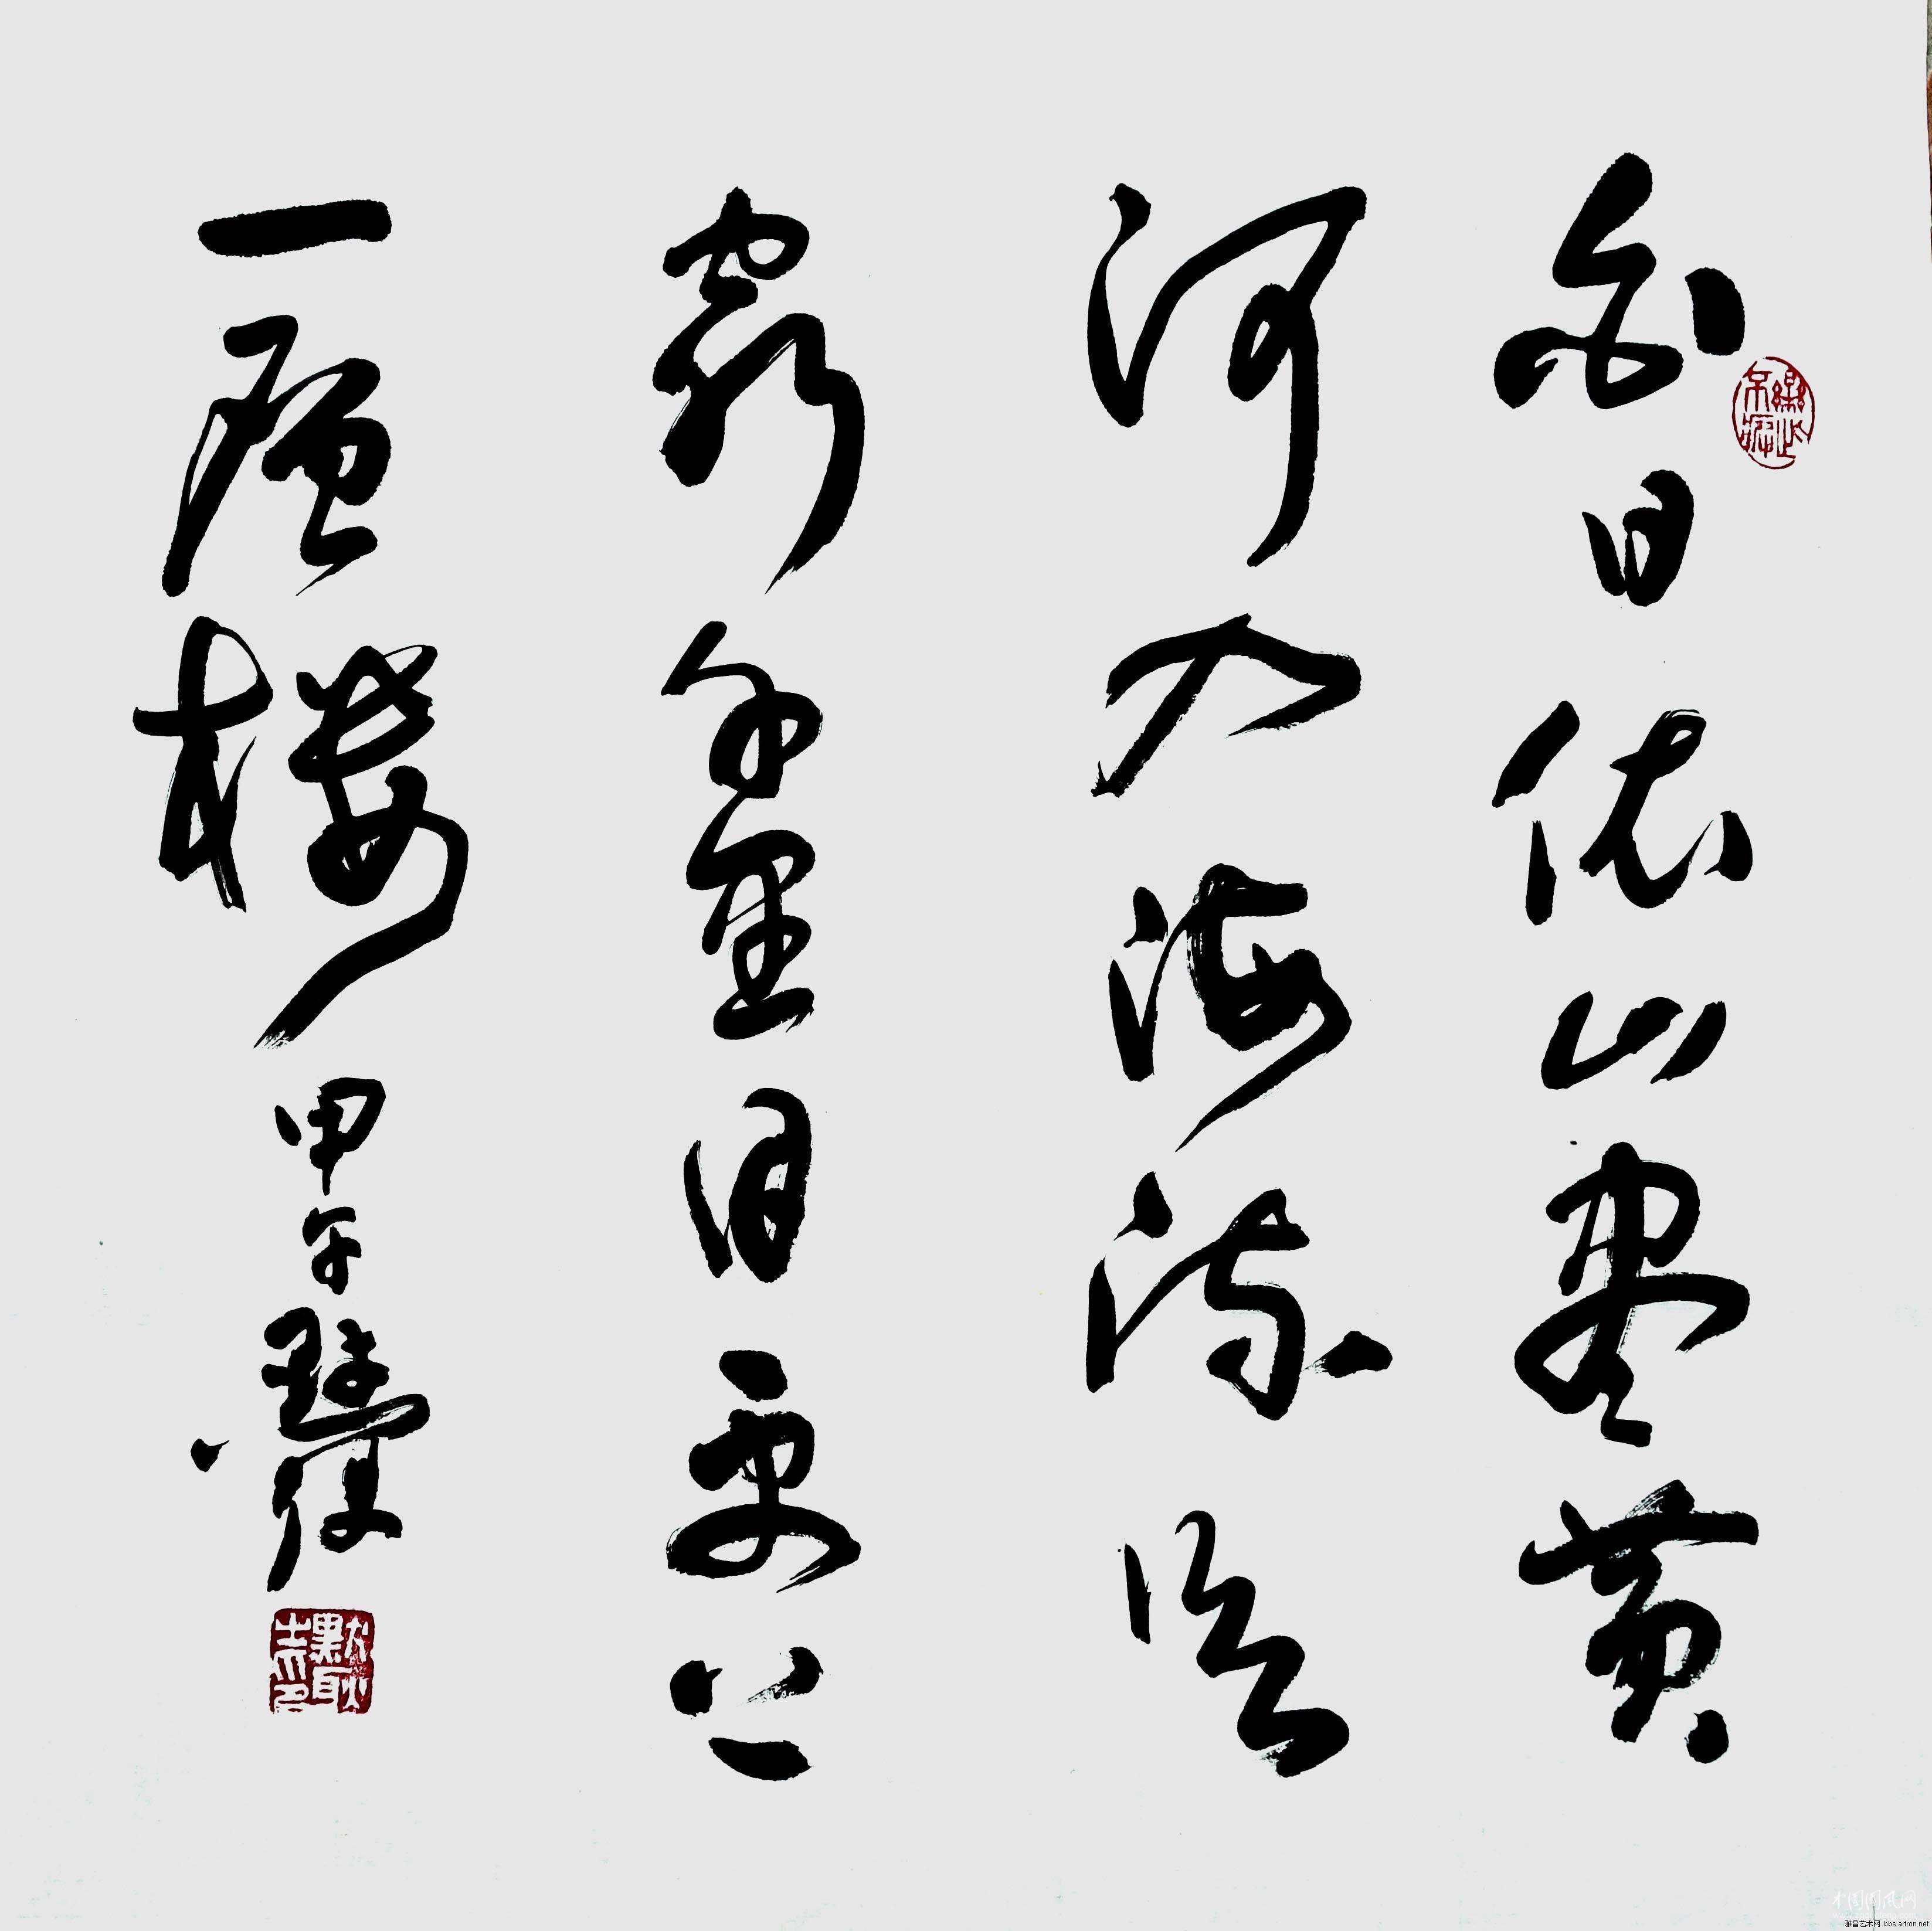 白日依山盡黃
河入海流欲
窮千里目更上
一層樓 甲子
雅昌艺术网 bbs.artron.net